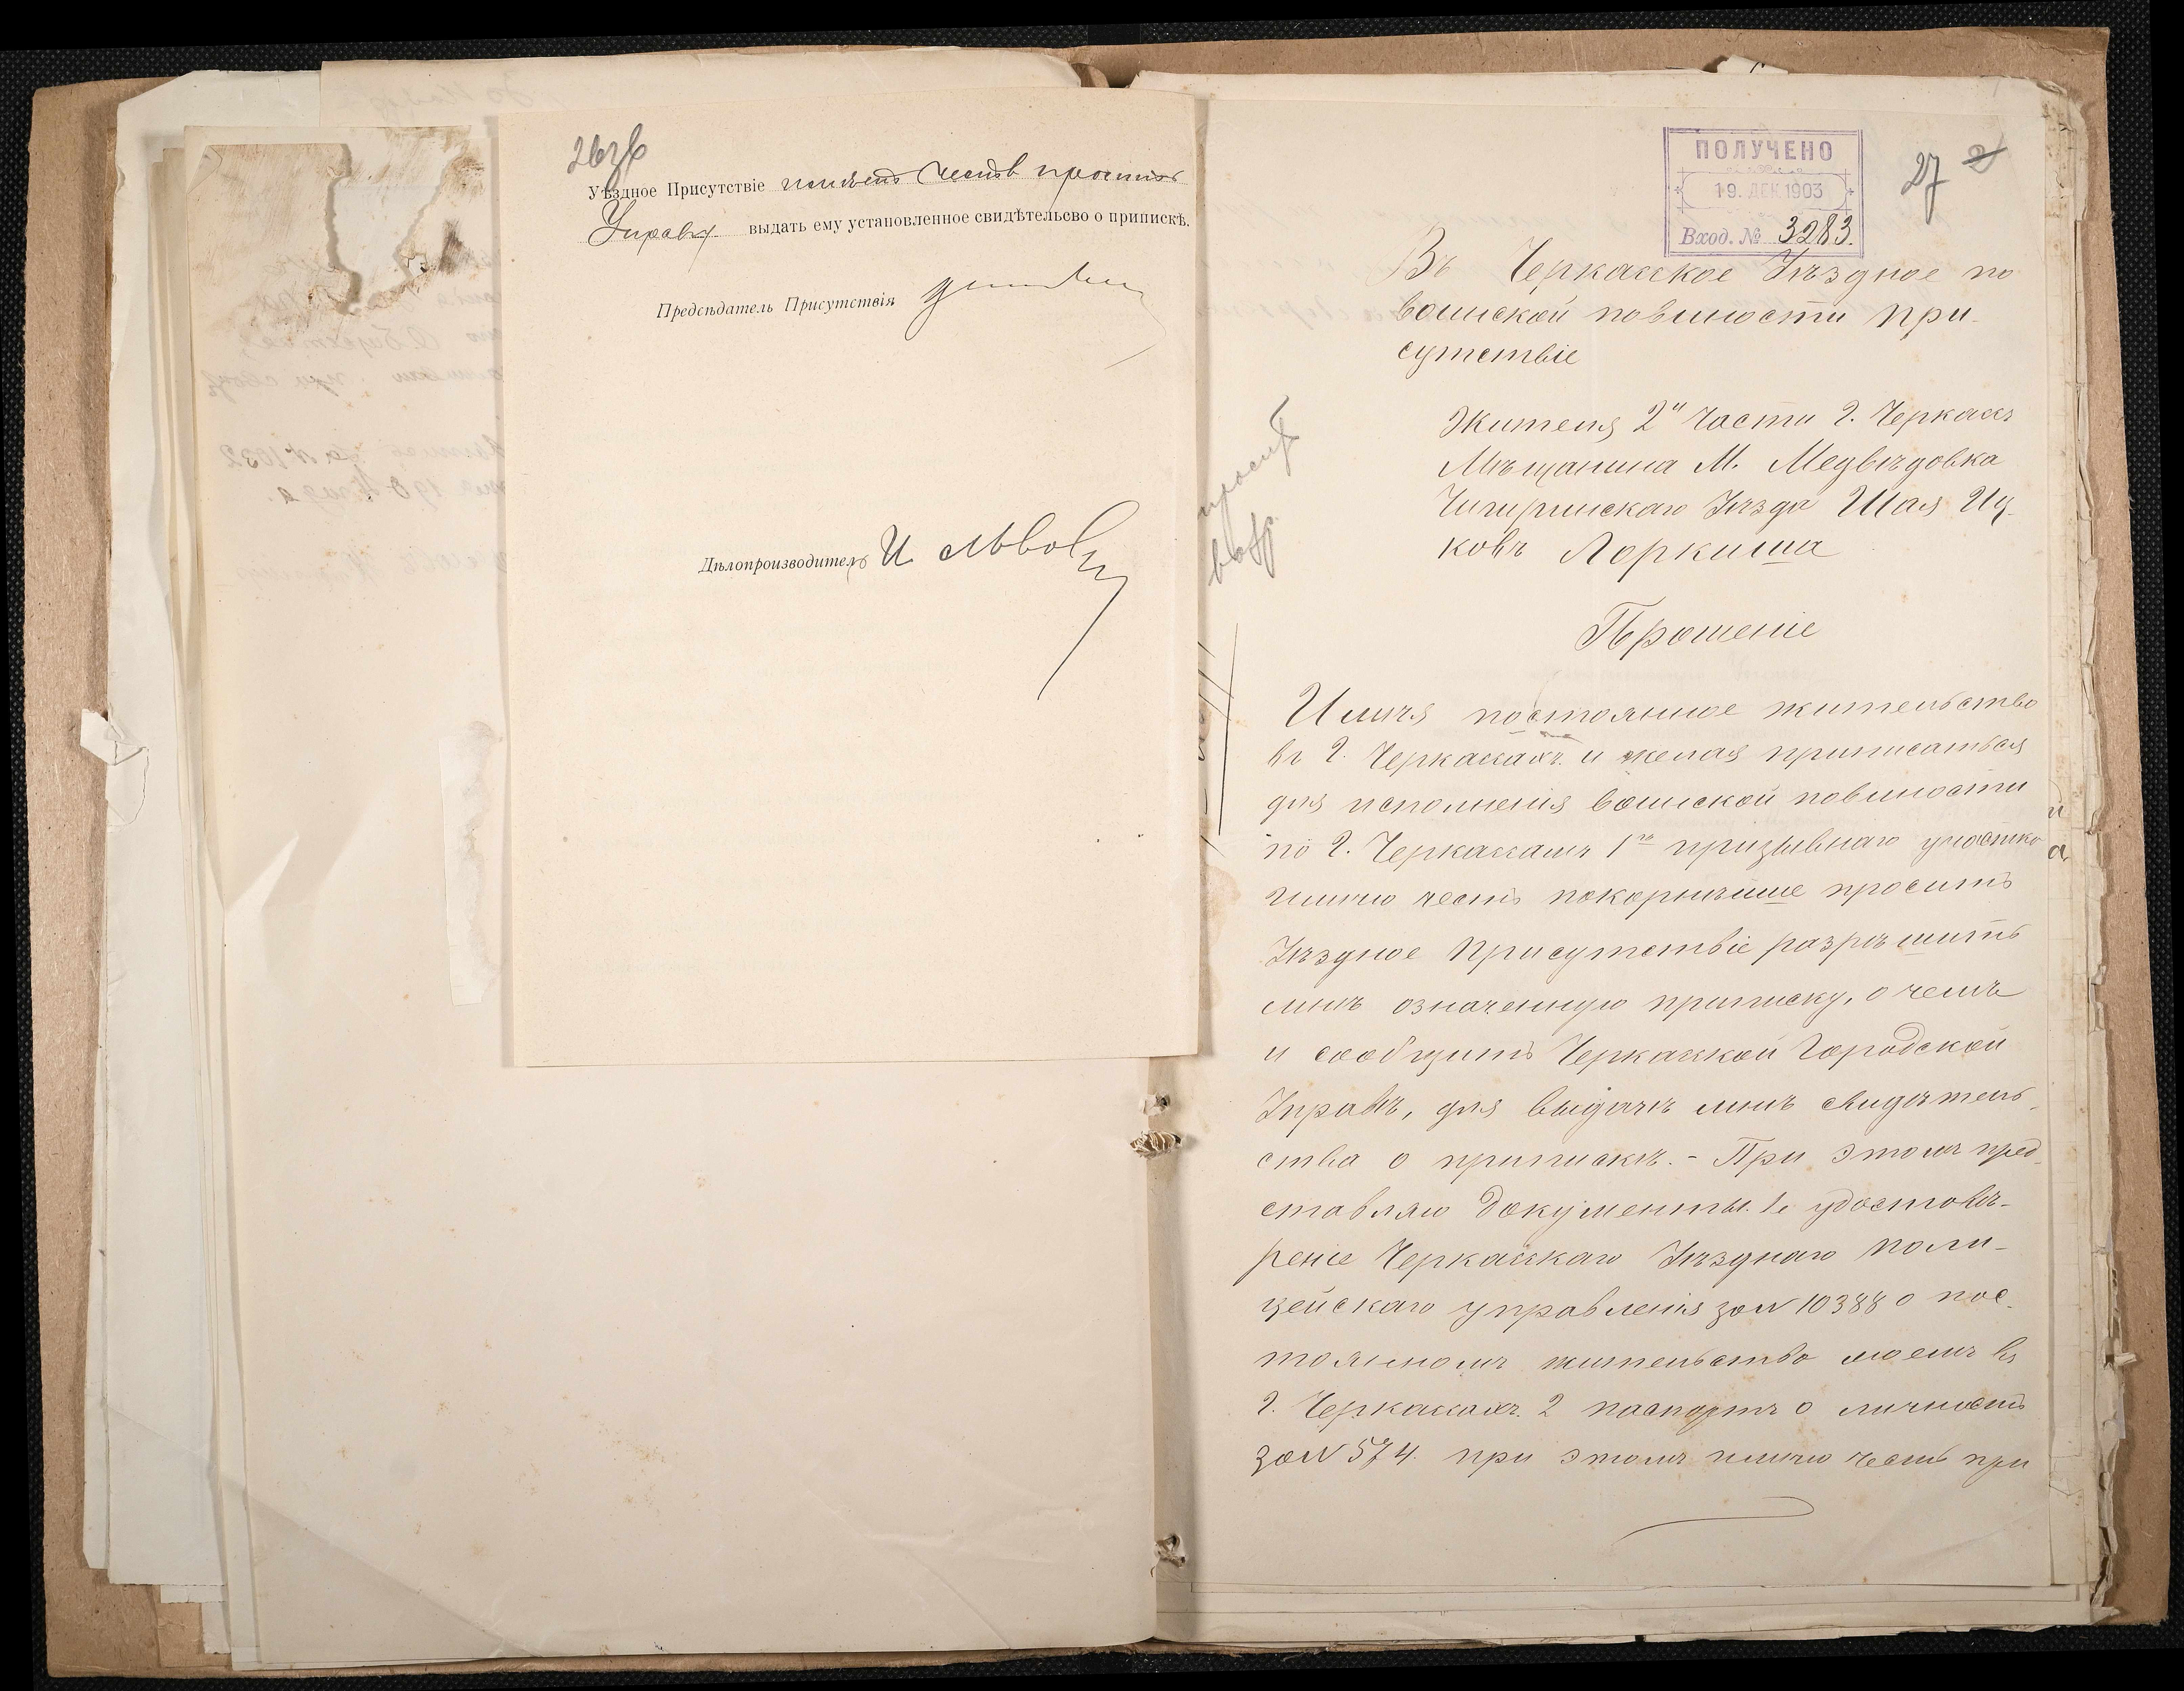 26зв
Уѣздное Присутствіе имѣетъ честь просить
Управу выдать ему установленное свидѣтельсво о припискѣ.
Предсѣдатель Присутствія
Дѣлопроизводитель И Львов
ПОЛУЧЕНО
19. ДЕК 1903
Вход. № 3283.
27
Въ Черкасское Уѣздное по
воинской повиности При-
сутствіе
Жителя 2й части г. Черкасъ
Мѣщанина М. Медвѣдовка
Чигиринскаго Уѣзда Шая Иц-
ковъ Лоркиша
Прошеніе
Имѣя постоянное жительство
въ г. Черкассахъ и желая приписаться
для исполненія воинской повиности
по г. Черкассамъ 1го призывнаго участка
имѣю честь покорнѣйше просить
Уѣздное Присутствіе разрѣшить
мнѣ означенную приписку, о чемъ
и сообщить Черкасской Городской
Управѣ, для выдачи мнѣ свидѣтель-
ства о припискѣ. - При этомъ пред-
ставляю документы. 1, удостовѣ-
реніе Черкасскаго Уѣзднаго Поли-
цейскаго управленія за N 10388 о пос-
тоянномъ жительство моемъ въ
г. Черкассахъ. 2 паспортъ о личность
за N 574. при этомъ имѣю честь при